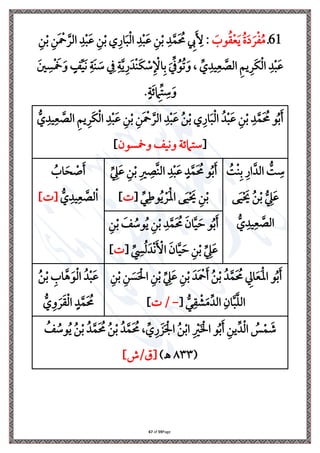 61. مُفْرَدَةُ يَعْقُوبَ : لِأَبِي مُحَمَّدِ بْنِ عَبْدِ الْبَارِي بْنِ عَبْدِ الرَّحْمَٰنِ بْنِ
عَبْدِ الْكَرِيمِ الصَّعِيدِيِّ ، وَتُوُفِّيَ بِالْإِسْكَنْدَرِيَّةِ فِي سَنَةِ نَيِّفٍ وَخَمْسِينَ
وَسِتِّمِائَةٍ.
أَبُو مُحَمَّدٍ عَبْدُ الْبَارِي بْنُ عَبْدِ الرَّحْمَٰنِ بْنِ عَبْدِ الْكَرِيمِ الصَّعِيدِيُّ
[ستمائة ونيف وخمسون]
سِتُّ الدَّارِ بِنْتُ
عَلِيُّ بْنُ يَحْيَىٰ
الصَّعِيدِيُّ
أَبُو مُحَمَّدٍ عَبْدِ النَّصِيرِ بْنِ عَلِيِّ
بْنِ يَحْيَىٰ الْمَرْيُوطِيِّ [ت]
أَصْحَابُ
الْصَّعِيدِيُّ [ت]
أَبُو حَيَّانَ مُحَمَّدِ بْنِ يُوسُفَ بْنِ
عَلِيِّ بْنِ حَيَّانَ الْأَنْدَلُسِيِّ [ت]
أَبُو الْمَعَالِي مُحَمَّدُ بْنُ أَحْمَدَ بْنِ عَلِيِّ بْنِ الْحَسَنِ بْنِ
اللَّبَّانِ الدِّمَشْقِيُّ [– / ت]
عَبْدُ الْوَهَّابِ بْنُ
مُحَمَّدٍ الْقَرَوِيُّ
شَمْسُ الدِّينِ أَبُو الْخَيْرِ ابْنُ الْجَزَرِيِّ، مُحَمَّدُ بْنُ مُحَمَّدُ بْنُ يُوسُفُ
(٨٣٣ هـ) [ق/ش]
67 of 99Page